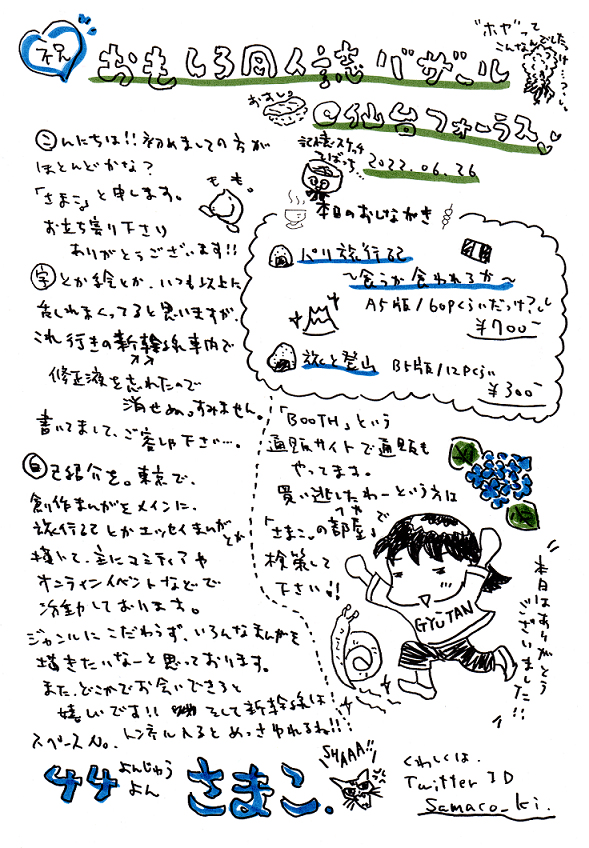 祝
おもしろ同人誌バザール
@仙台フォーラス
"ホヤ"って
こんなんでしたっけ…？
おすし。
記念スタンプ
2022.06.26
もも。
こんにちは!!初めましての方が
ほとんどかな？
「さまこ。」と申します。
お立ち寄り下さり
ありがとうございます!!
字とか絵とか、いつも以上に
乱れまくってると思いますが、
これ行きの新幹線車内で
書いてまして、ご容赦下さい…。
修正液を忘れたので
消せぬっすみません。
自己紹介を。東京で、
創作まんがをメインに、
旅行記とかエッセイまんがとか
描いて、主にコミティアや
オンラインイベントなどで
活動しております。
ジャンルにこだわらず、いろんなまんがを
描きたいなーと思っております。
また、どこかでお会いできると
嬉しいです!! そして新幹線は!
トンネル入るとめっさゆれるね!!
本日のおしながき
パリ旅行記
～食うか食われるか～
A5版/60Pくらいだっけ？
¥700-
旅と登山 B5版/12Pくらい
¥300-
「BOOTH」という
通販サイトで通販も
やってます。
買い逃したわーという方は
「さまこ。の部屋」で
へや
検索して
下さい!!
GYŪTAN
本日はありがとう
ございました!!
スペースNo.
44
よんじゅう
よん
さまこ。
SHAAA!!
くわしくは、
Twitter ID
samaco_ki.